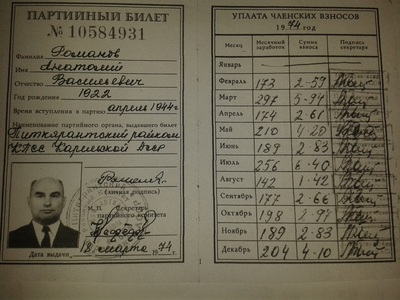 ПАРТИЙНЫЙ БИЛЕТ
№ 10584931
Фамилия Романов
Имя Анатолий
Отчество Васильевич
Год рождения 1922
Время вступления в партию апрель 1944 г.
Наименование партийного органа, выдавшего билет
Питкярантский райком
КПСС Карельской АССР
(личная подпись)
М.П. Секретарь
партийного комитета
18 марта 1974 г.
Дата выдачи
УПЛАТА ЧЛЕНСКИХ ВЗНОСОВ
1974 ГОД
Месяц Месячный заработок Сумма взноса Подпись секретаря
Январь —
Февраль 173 2-59
Март 297 5-94
Апрель 174 2-61
Май 210 4-20
Июнь 189 2-83
Июль 256 6-40
Август 142 1-42
Сентябрь 177 2-66
Октябрь 198 2-97
Ноябрь 189 2-83
Декабрь 204 4-10